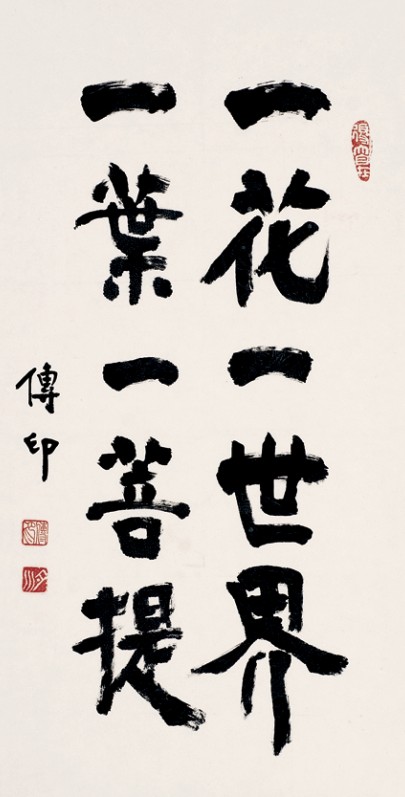 一花一世界
一葉一菩提
傳印